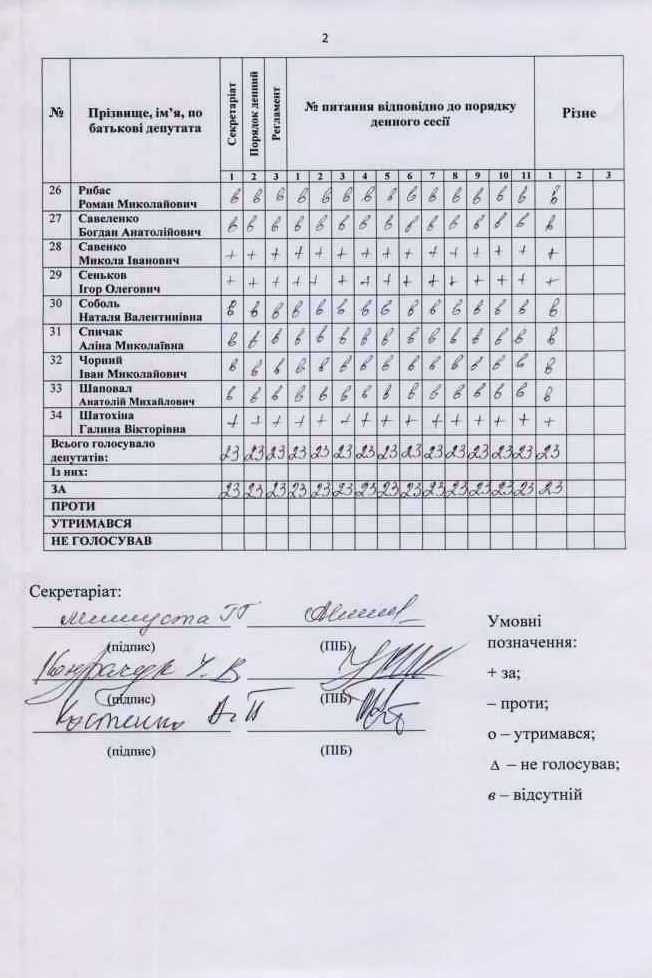 2
№ Прізвище, ім’я, по батькові депутата Секретаріат Порядок денний Регламент № питання відповідно до порядку денного сесії Різне
1 2 3 1 2 3 4 5 6 7 8 9 10 11 1 2 3
26 Рибас Роман Миколайович в в в в в в в в в в в в в в в
27 Савеленко Богдан Анатолійович в в в в в в в в в в в в в в в
28 Савенко Микола Іванович + + + + + + + + + + + + + + +
29 Сеньков Ігор Олегович + + + + + + + + + + + + + + +
30 Соболь Наталя Валентинівна в в в в в в в в в в в в в в в
31 Спичак Аліна Миколаївна в в в в в в в в в в в в в в в
32 Чорний Іван Миколайович в в в в в в в в в в в в в в в
33 Шаповал Анатолій Михайлович в в в в в в в в в в в в в в в
34 Шатохіна Галина Вікторівна + + + + + + + + + + + + + + +
Всього голосувало депутатів: 23 23 23 23 23 23 23 23 23 23 23 23 23 23 23
Із них:
ЗА 23 23 23 23 23 23 23 23 23 23 23 23 23 23 23
ПРОТИ
УТРИМАВСЯ
НЕ ГОЛОСУВАВ
Секретаріат:
(підпис) (ПІБ)
(підпис) (ПІБ)
Костенко
(підпис) (ПІБ)
Умовні
позначення:
+ за;
– проти;
о – утримався;
Δ – не голосував;
в – відсутній